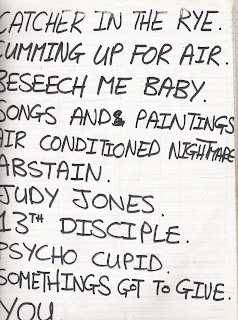 CATCHER IN THE RYE.
CUMMING UP FOR AIR.
BESEECH ME BABY.
SONGS AND & PAINTINGS
AIR CONDITIONED NIGHTMARE
ABSTAIN.
JUDY JONES.
13TH DISCIPLE.
PSYCHO CUPID.
SOMETHINGS GOT TO GIVE.
YOU